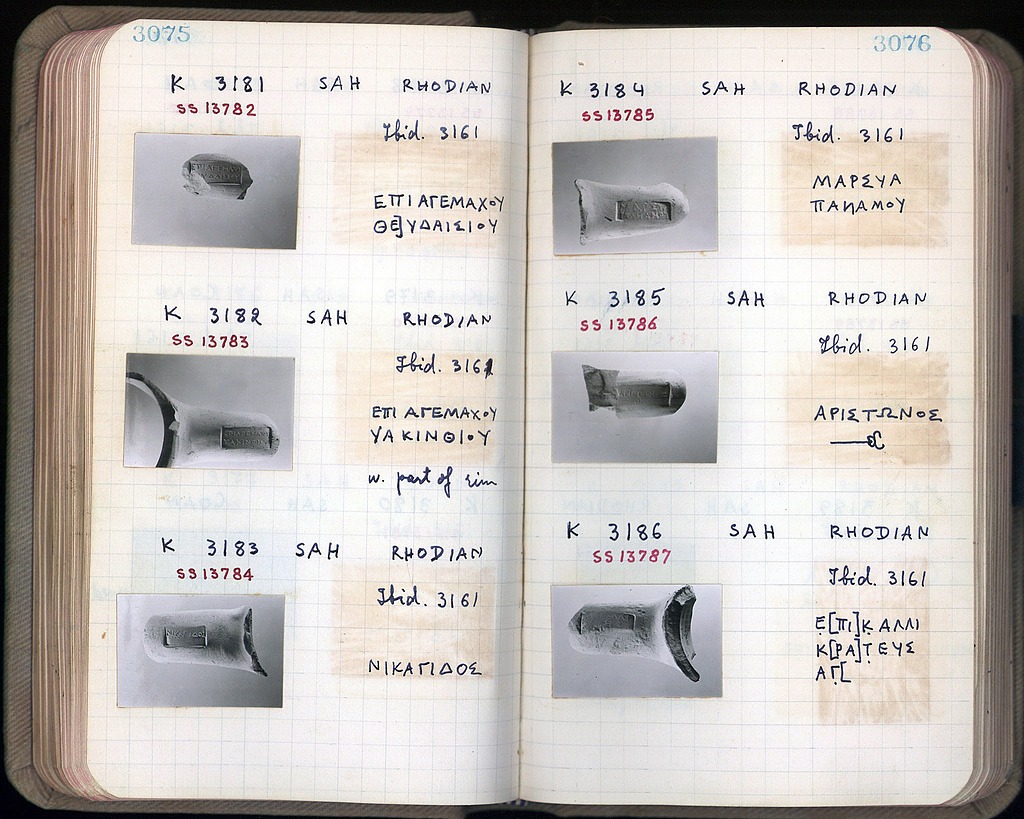 3075
K 3181 SAH RHODIAN
SS 13782
Ibid. 3161
ΕΠΙ ΑΓΕΜΑΧΟΥ
ΘΕ]ΥΔΑΙΣΙΟΥ
K 3182 SAH RHODIAN
SS 13783
Ibid. 3161
ΕΠΙ ΑΓΕΜΑΧΟΥ
ΥΑΚΙΝΘΙΟΥ
w. part of rim
K 3183 SAH RHODIAN
SS 13784
Ibid. 3161
ΝΙΚΑΓΙΔΟΣ
3076
K 3184 SAH RHODIAN
SS 13785
Ibid. 3161
ΜΑΡΣΥΑ
ΠΑΝΑΜΟΥ
K 3185 SAH RHODIAN
SS 13786
Ibid. 3161
ΑΡΙΣΤΩΝΟΣ
K 3186 SAH RHODIAN
SS 13787
Ibid. 3161
Ε[ΠΙ]Κ̣ΑΛΛΙ
Κ[ΡΑ]Τ̣ΕΥΣ
ΑΓ̣[